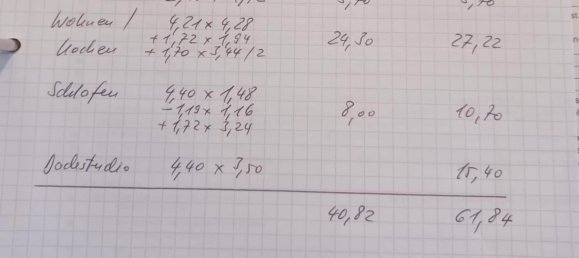 Wohnen / 4,21 x 4,28
+ 1,72 x 1,94 24,30 27,22
Kochen + 1,70 x 3,44/2
Schlafen 4,40 x 1,48
- 1,19 x 1,16 8,00 10,70
+ 1,72 x 3,24
Dachstudio 4,40 x 3,50 15,40
40,82 61,84